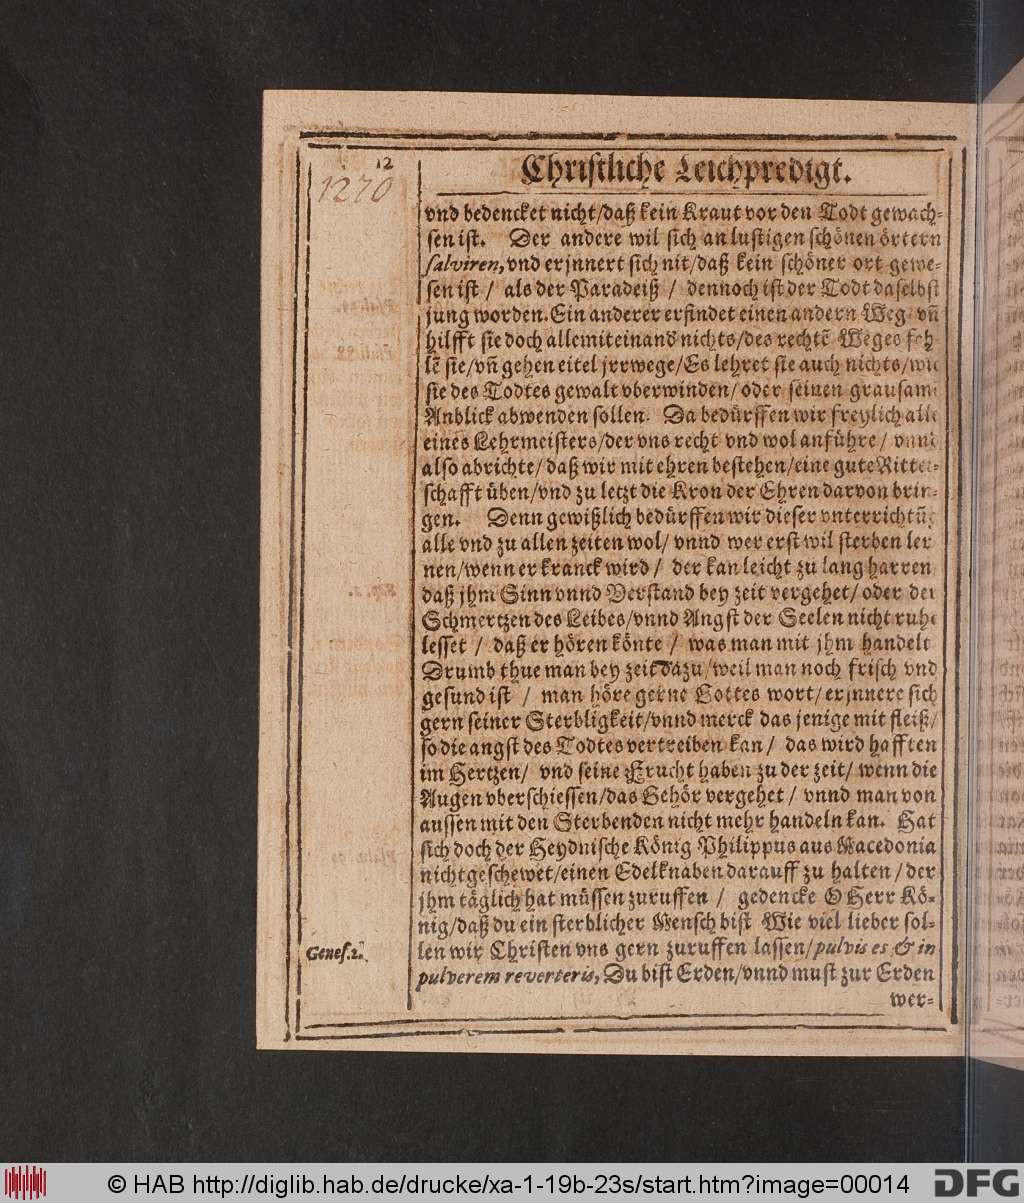 12
1270
Christliche Leichpredigt.
vnd bedencket nicht/daß kein Kraut vor den Todt gewach-
sen ist. Der andere wil sich an lustigen schönen örtern
salviren, vnd erjnnert sich nit/daß kein schöner ort gewe-
sen ist / als der Paradeiß / dennoch ist der Todt daselbst
jung worden. Ein anderer erfindet einen andern Weg/ vñ
hilfft sie doch allemiteinand nichts/des rechtē Weges feh-
lē sie/vñ gehen eitel jrrwege/Es lehret sie auch nichts/wie
sie des Todtes gewalt vberwinden/oder seinen grausam
Anblick abwenden sollen. Da bedürffen wir freylich alle
eines Lehrmeisters/der vns recht vnd wol anführe/ vnnd
also abrichte/daß wir mit ehren bestehen/eine gute Ritter-
schafft üben/vnd zu letzt die Kron der Ehren darvon brin-
gen. Denn gewißlich bedürffen wir dieser vnterrichtūg
alle vnd zu allen zeiten wol/ vnnd wer erst wil sterben ler
nen/wenn er kranck wird / der kan leicht zu lang harren
daß jhm Sinn vnnd Verstand bey zeit vergehet/ oder der
Schmertzen des Leibes/vnnd Angst der Seelen nicht ruhe
lesset / daß er hören könte / was man mit jhm handelt
Drumb thue man bey zeit dazu/weil man noch frisch vnd
gesund ist / man höre gerne Gottes wort/erjnnere sich
gern seiner Sterbligkeit/vnnd merck das jenige mit fleiß/
so die angst des Todtes vertreiben kan/ das wird hafften
im Hertzen/ vnd seine Frucht haben zu der zeit/ wenn die
Augen vberschiessen/das Gehör vergehet/ vnnd man von
aussen mit den Sterbenden nicht mehr handeln kan. Hat
sich doch der Heydnische König Philippus aus Macedonia
nicht geschewet/einen Edelknaben darauff zu halten/der
jhm täglich hat müssen zuruffen / gedencke O Herr Kö-
nig/daß du ein sterblicher Mensch bist Wie viel lieber sol-
Genes. 2.
len wir Christen vns gern zuruffen lassen/pulvis es & in
pulverem reverteris, Du bist Erden/vnnd must zur Erden
wer-
© HAB http://diglib.hab.de/drucke/xa-1-19b-23s/start.htm?image=00014
DFG